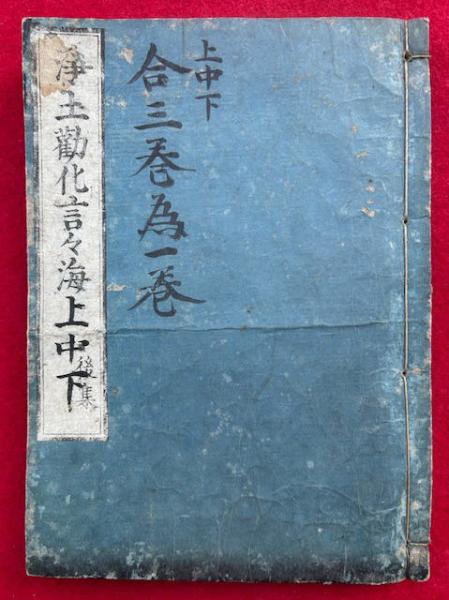 上中下
合三巻為一巻
浄土勸化言々海上中下
後集